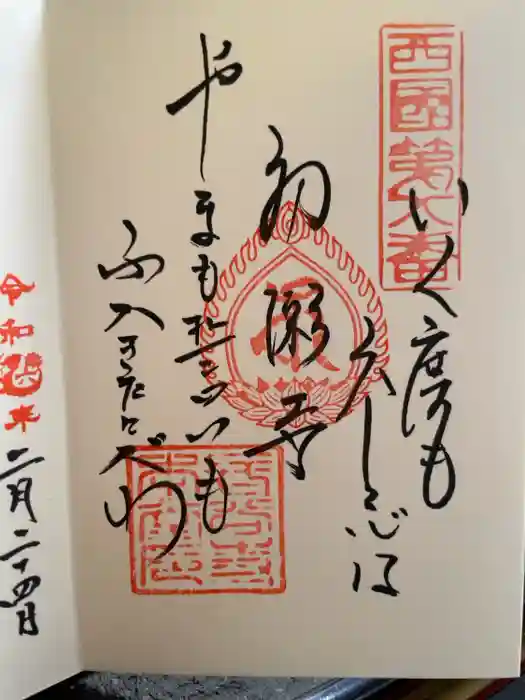 西國第八番
いく度も
心は
初瀬寺
やまもちかいも
ふかきたに
令和四年二月二十四日